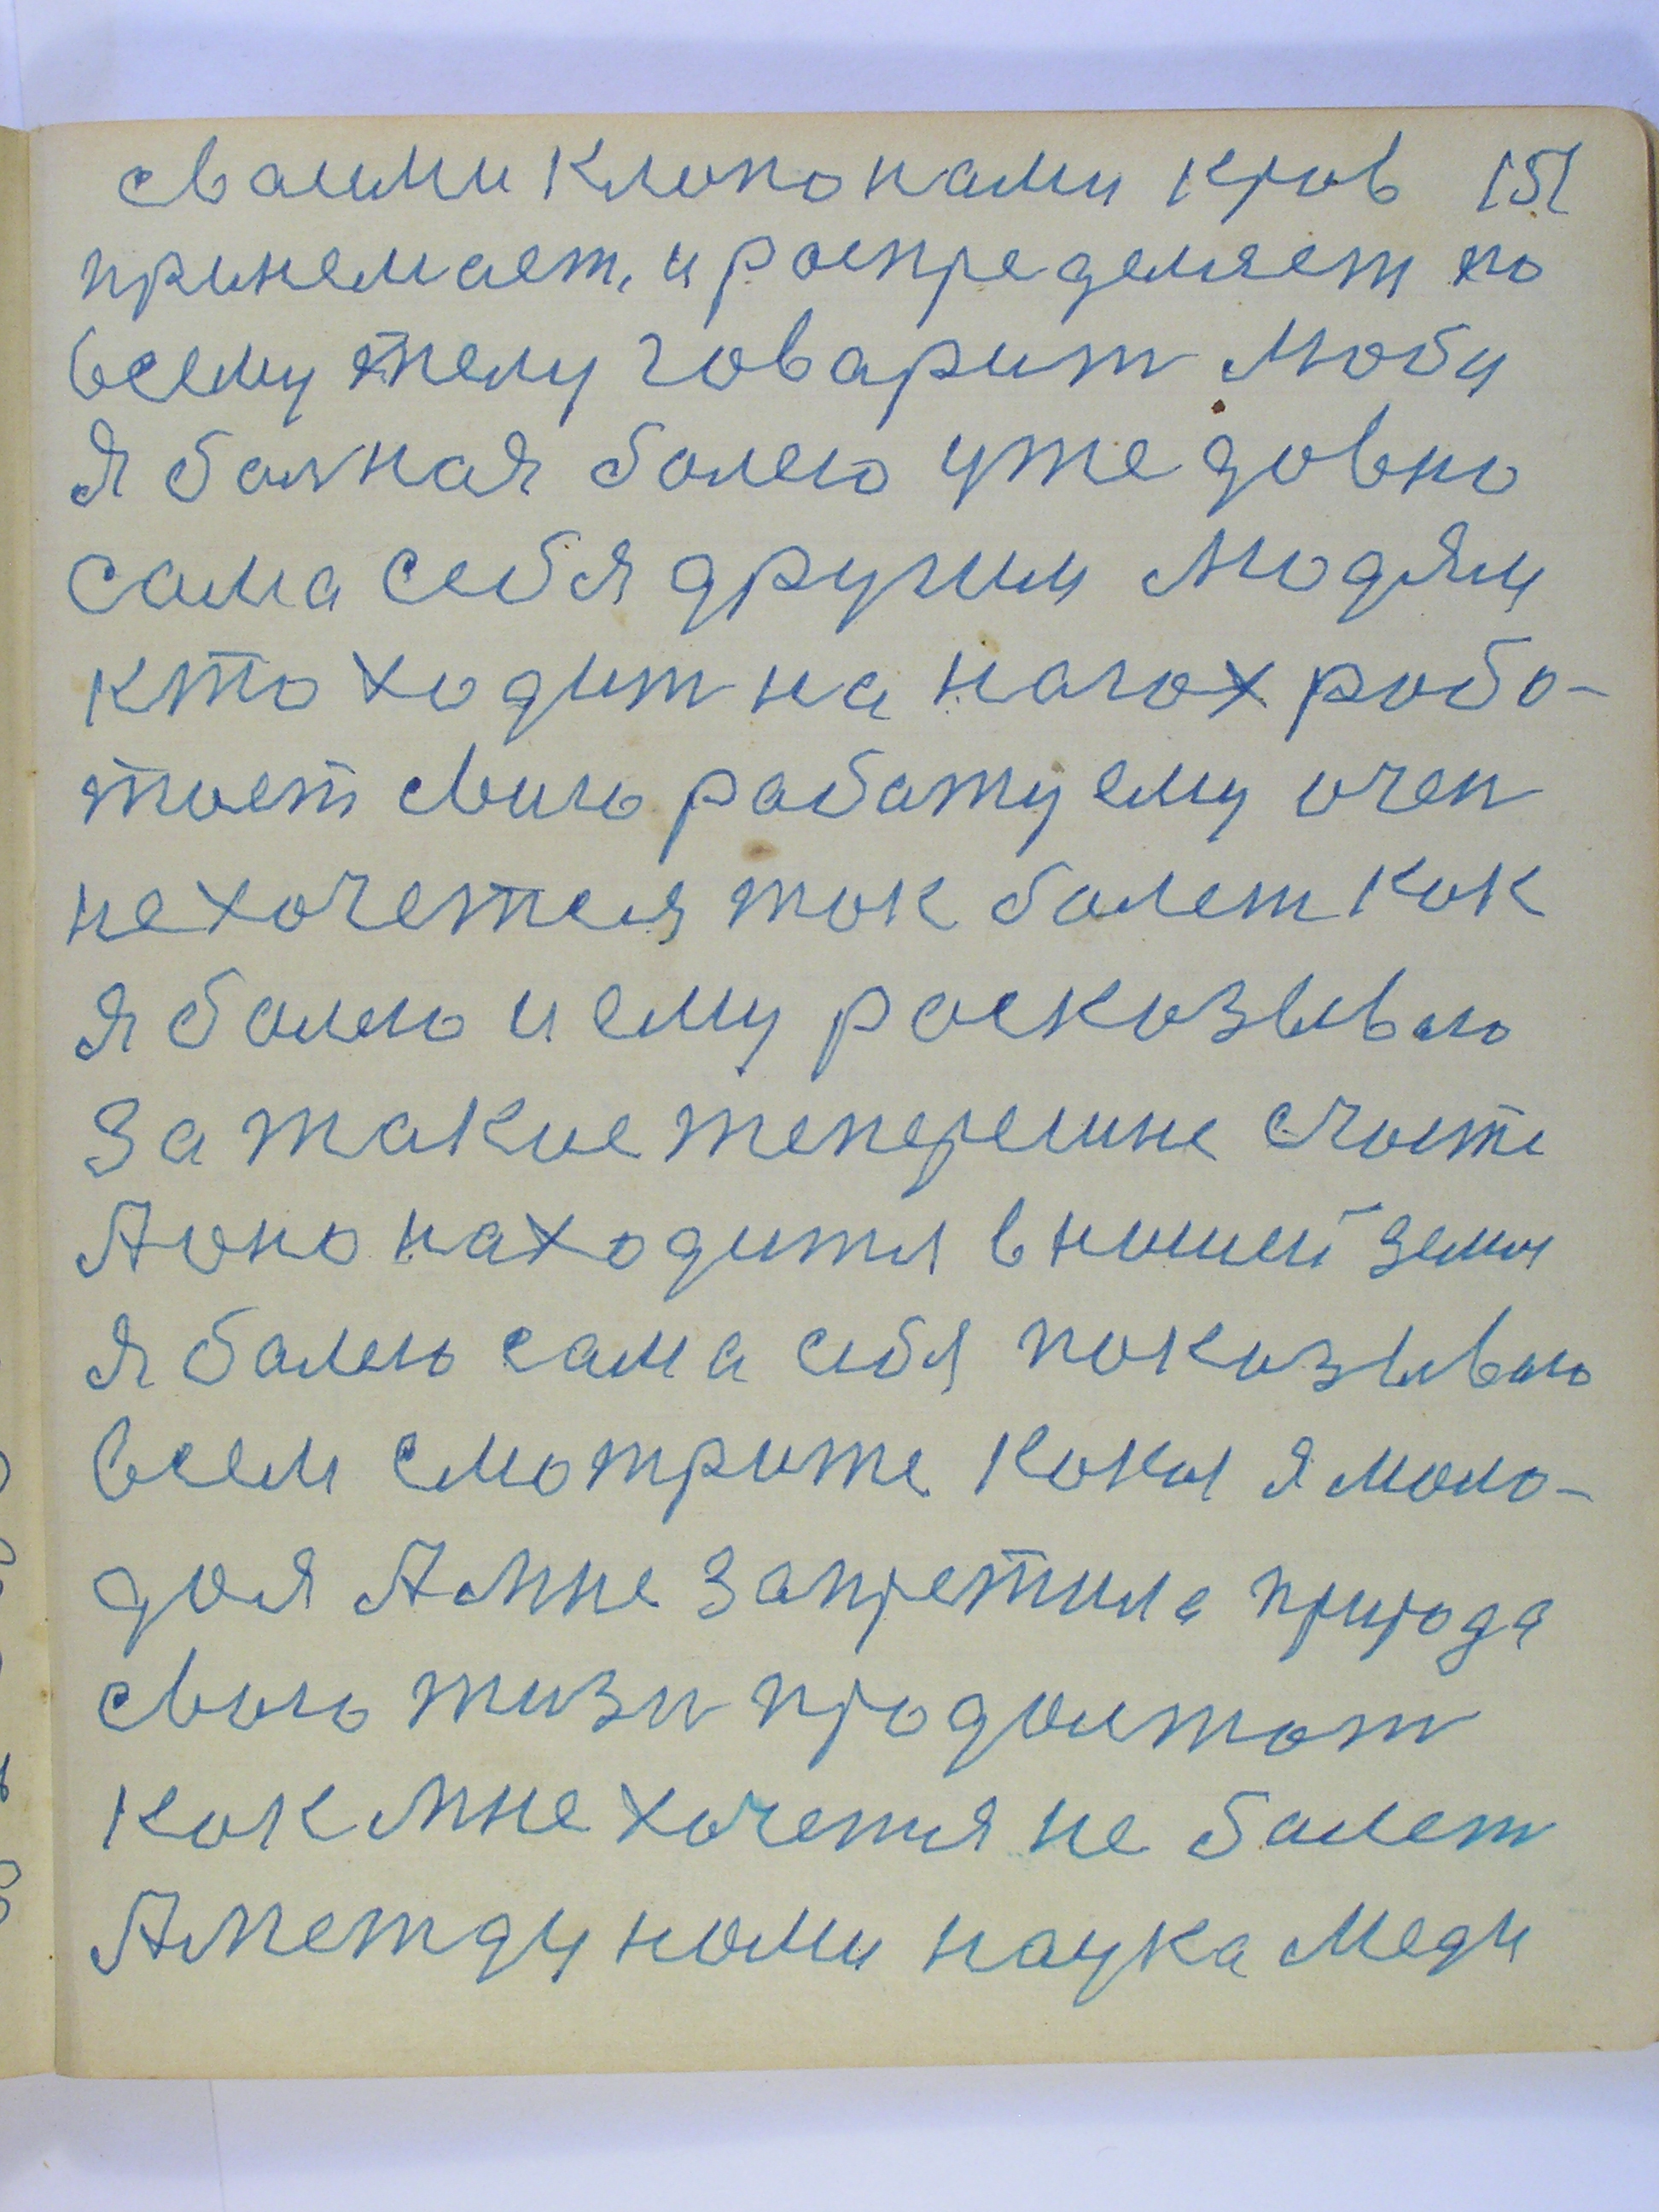 сваими клопонами кров 151
принемает, и роспределяет по
всему телу говарит Люба
Я балная болею уже довно
сама себя другим людям
кто ходит на ногах робо-
тоет свою работу ему очен
не хочется ток болет кок
я болею и ему росказываю
за такие теперешне счасте
А оно находится в нашей земли
я балею сама себя показываю
всем смотрите кокая моло-
доя А мне запретила природа
свою жизн продолжат
кок мне хочется не балет
А между нами наука меди